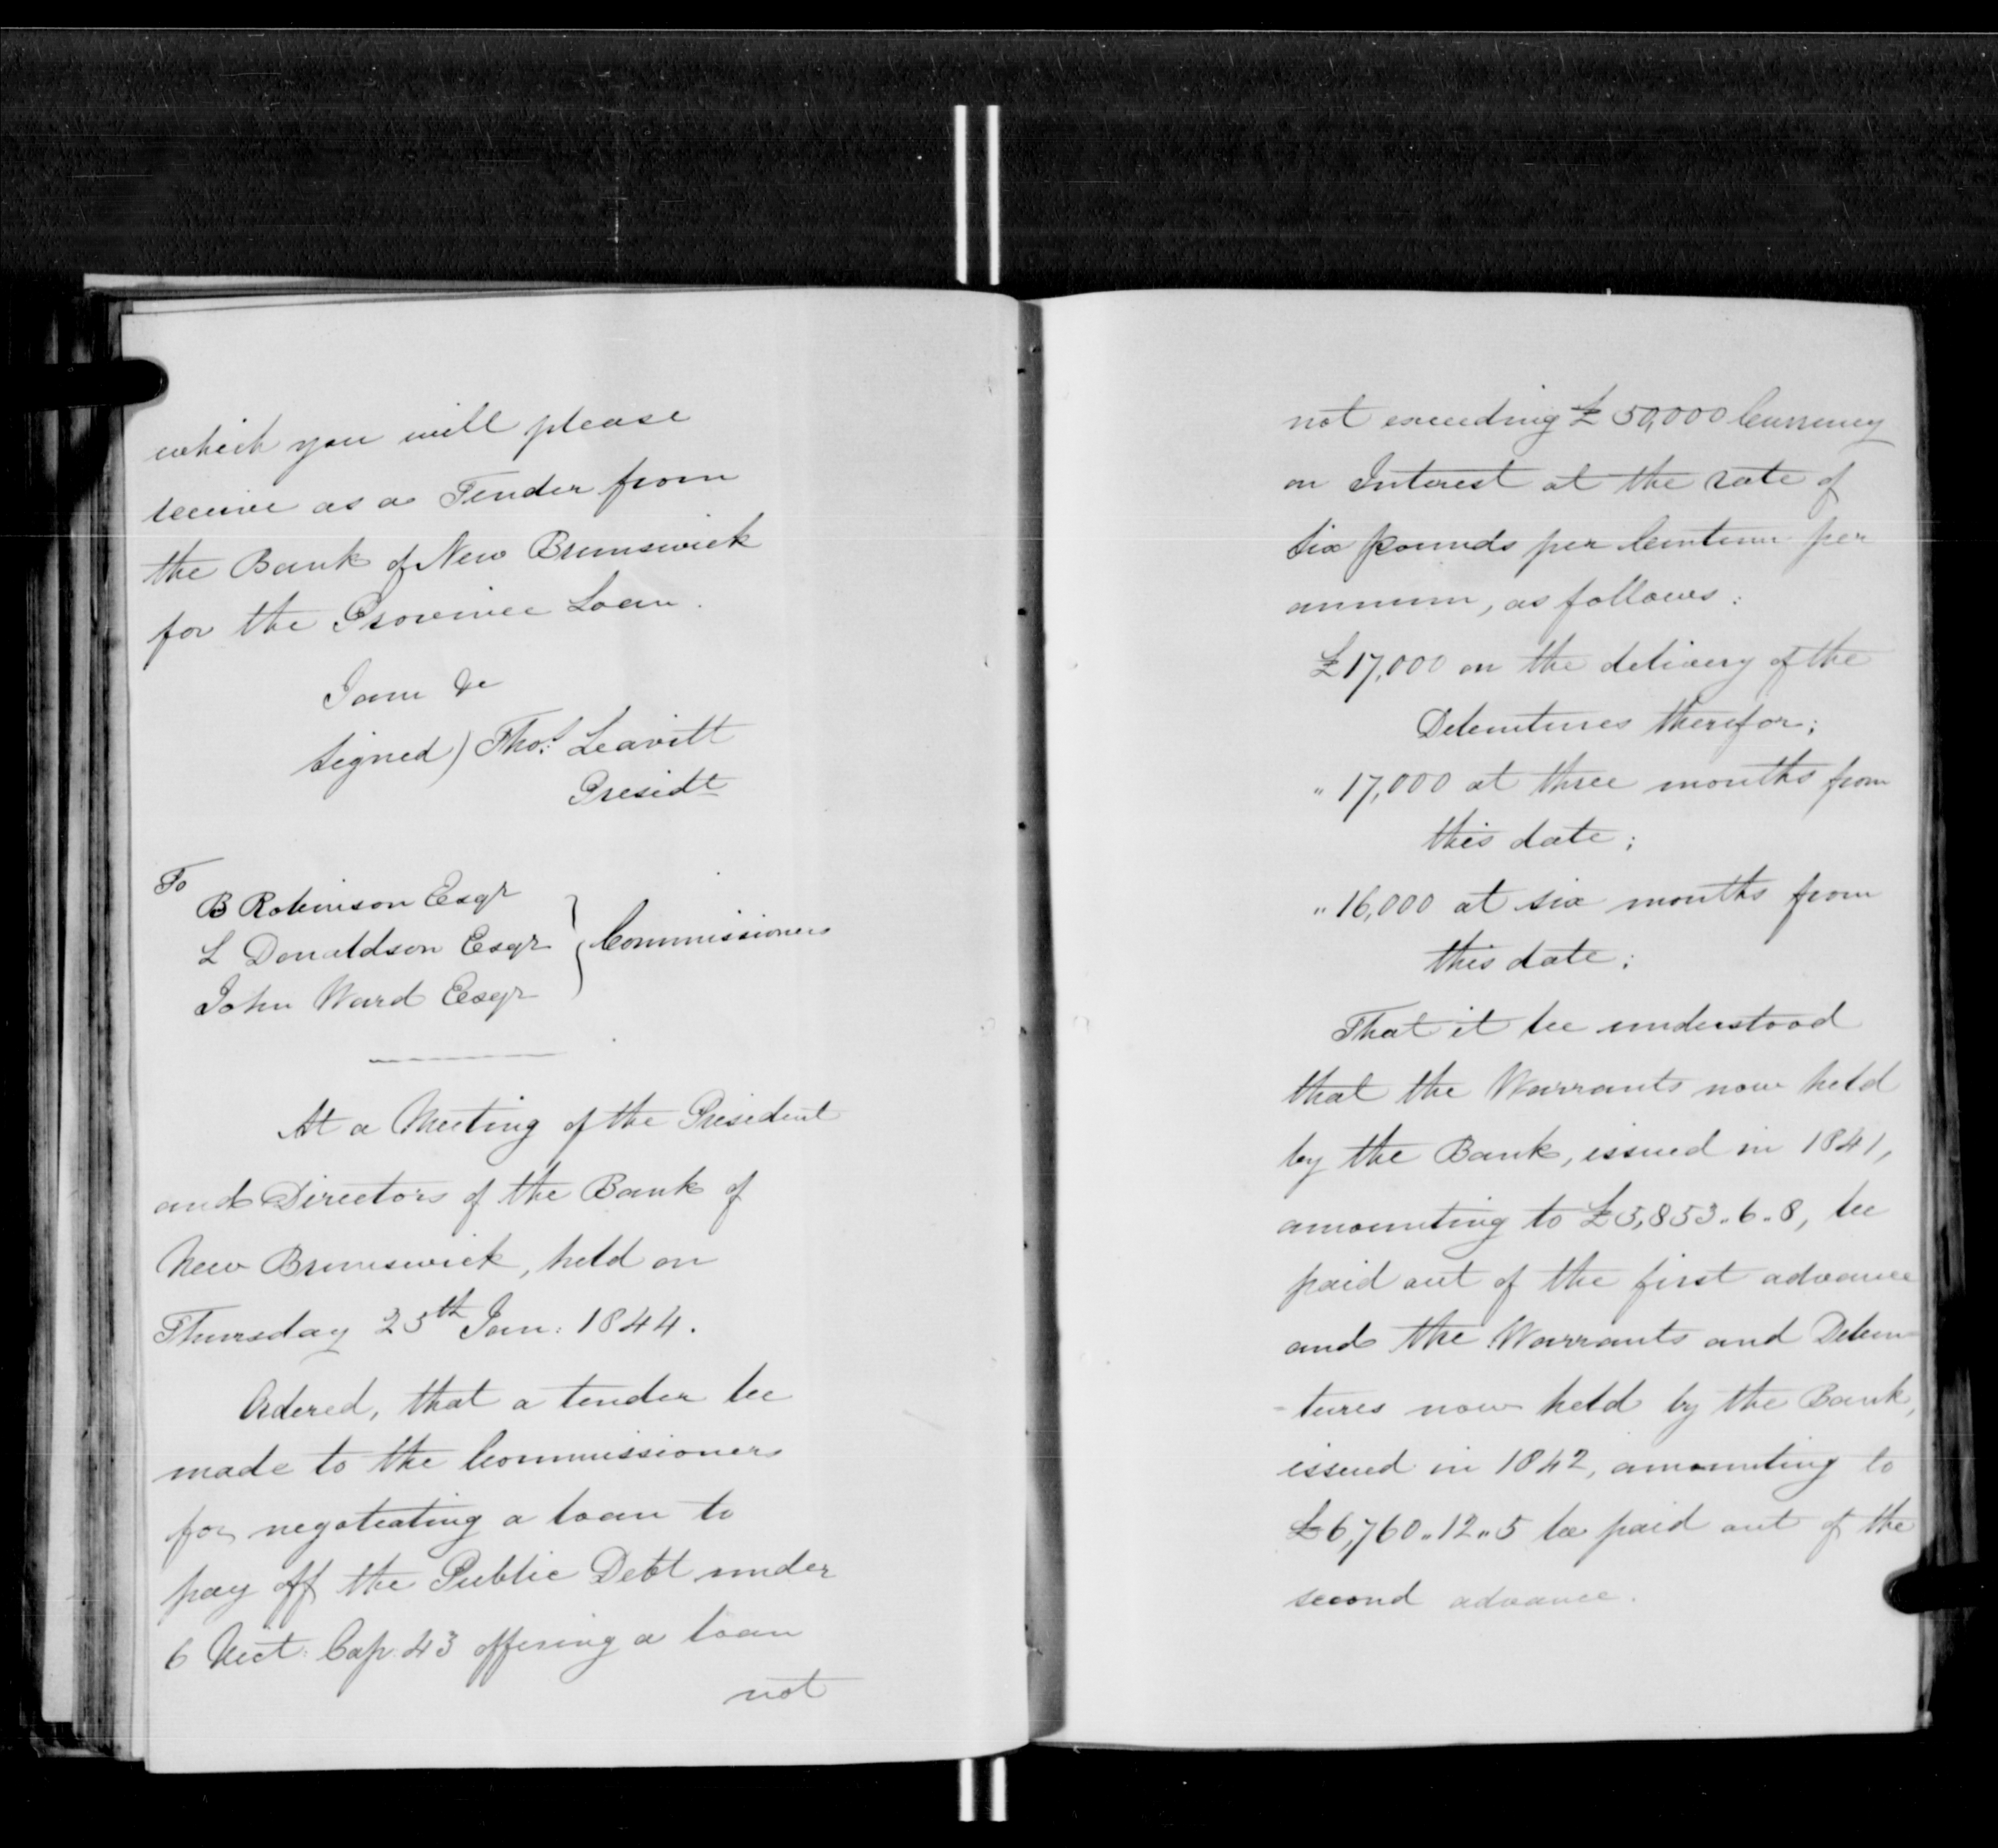 which you will please
receive as a Tender from
the Bank of New Brunswick
for the Province Loan.
I am &c
signed) Thos. Leavitt
Presidt
To
B Robinson Esqr
L Donaldson Esqr } Commissioners
John Ward Esqr
At a Meeting of the President
and Directors of the Bank of
New Brunswick, held on
Thursday 25th Jan: 1844.
Ordered, that a tender be
made to the Commissioners
for negotiating a loan to
pay off the Public Debt under
6 Vict. Cap. 43 offering a loan
not
not exceeding £50,000 Currency
on Interest at the rate of
six pounds per Centum per
annum, as follows:
£17,000 on the delivery of the
Debentures therefor;
" 17,000 at three months from
this date;
" 16,000 at six months from
this date;
That it be understood
that the Warrants now held
by the Bank, issued in 1841,
amounting to £5,853..6..8, be
paid out of the first advance
and the Warrants and Deben=
=tures now held by the Bank,
issued in 1842, amounting to
£6,760..12..5 be paid out of the
second advance.